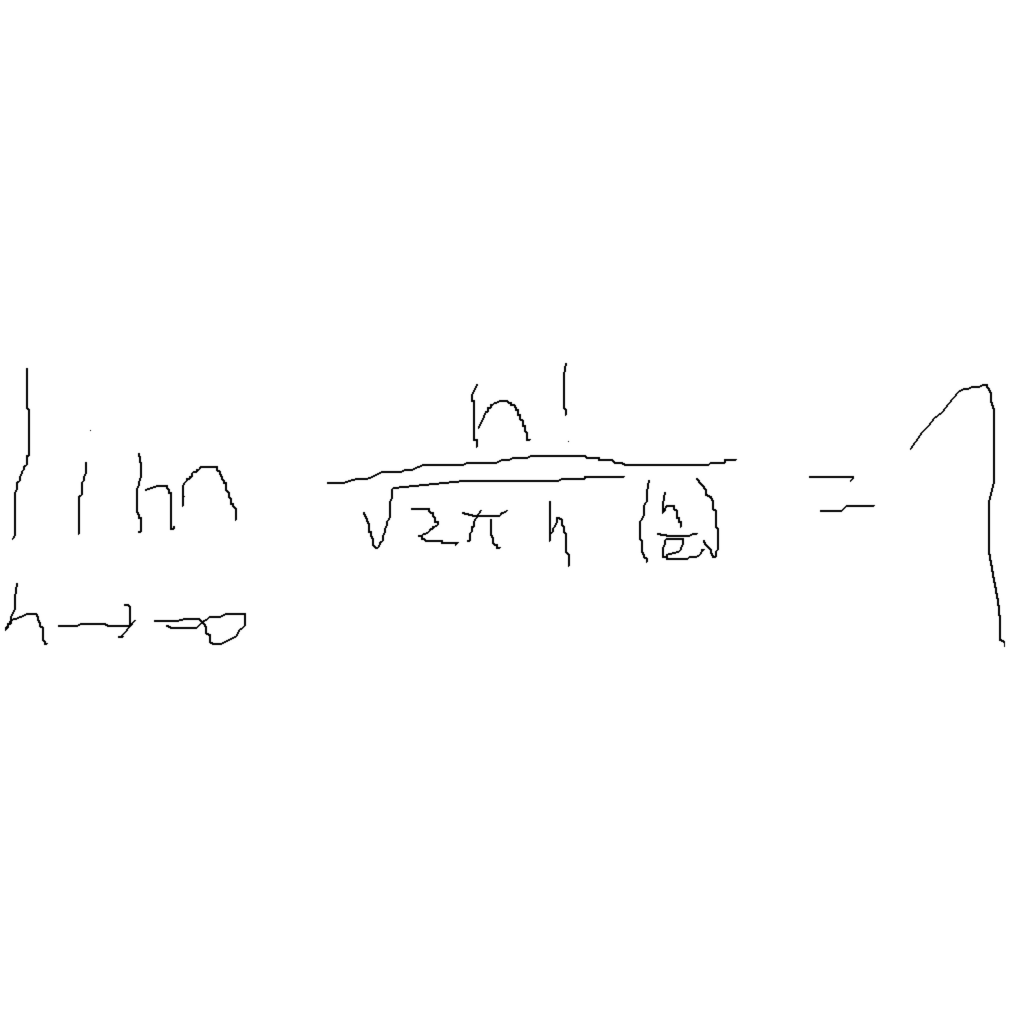 lim n→∞ n! / (√(2πn) (n/e)) = 1